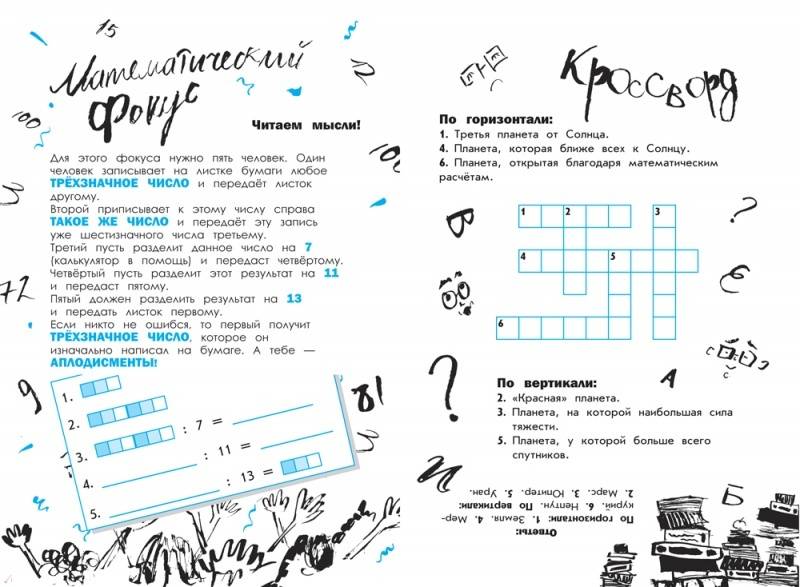 15
Математический
фокус
12
100
100
72
9
81
Читаем мысли!
Для этого фокуса нужно пять человек. Один
человек записывает на листке бумаги любое
ТРЁХЗНАЧНОЕ ЧИСЛО и передаёт листок
другому.
Второй приписывает к этому числу справа
ТАКОЕ ЖЕ ЧИСЛО и передаёт эту запись
уже шестизначного числа третьему.
Третий пусть разделит данное число на 7
(калькулятор в помощь) и передаст четвёртому.
Четвёртый пусть разделит этот результат на 11
и передаст пятому.
Пятый должен разделить результат на 13
и передать листок первому.
Если никто не ошибся, то первый получит
ТРЁХЗНАЧНОЕ ЧИСЛО, которое он
изначально написал на бумаге. А тебе —
АПЛОДИСМЕНТЫ!
1.
2.
3. : 7 =
4. : 11 =
5. : 13 =
Кроссворд
По горизонтали:
1. Третья планета от Солнца.
4. Планета, которая ближе всех к Солнцу.
6. Планета, открытая благодаря математическим
расчётам.
1 2 3
4 5
6
В
?
Є
?
А
И
Б
По вертикали:
2. «Красная» планета.
3. Планета, на которой наибольшая сила
тяжести.
5. Планета, у которой больше всего
спутников.
Ответы:
По горизонтали: 1. Земля. 4. Мер-
курий. 6. Нептун. По вертикали:
2. Марс. 3. Юпитер. 5. Уран.